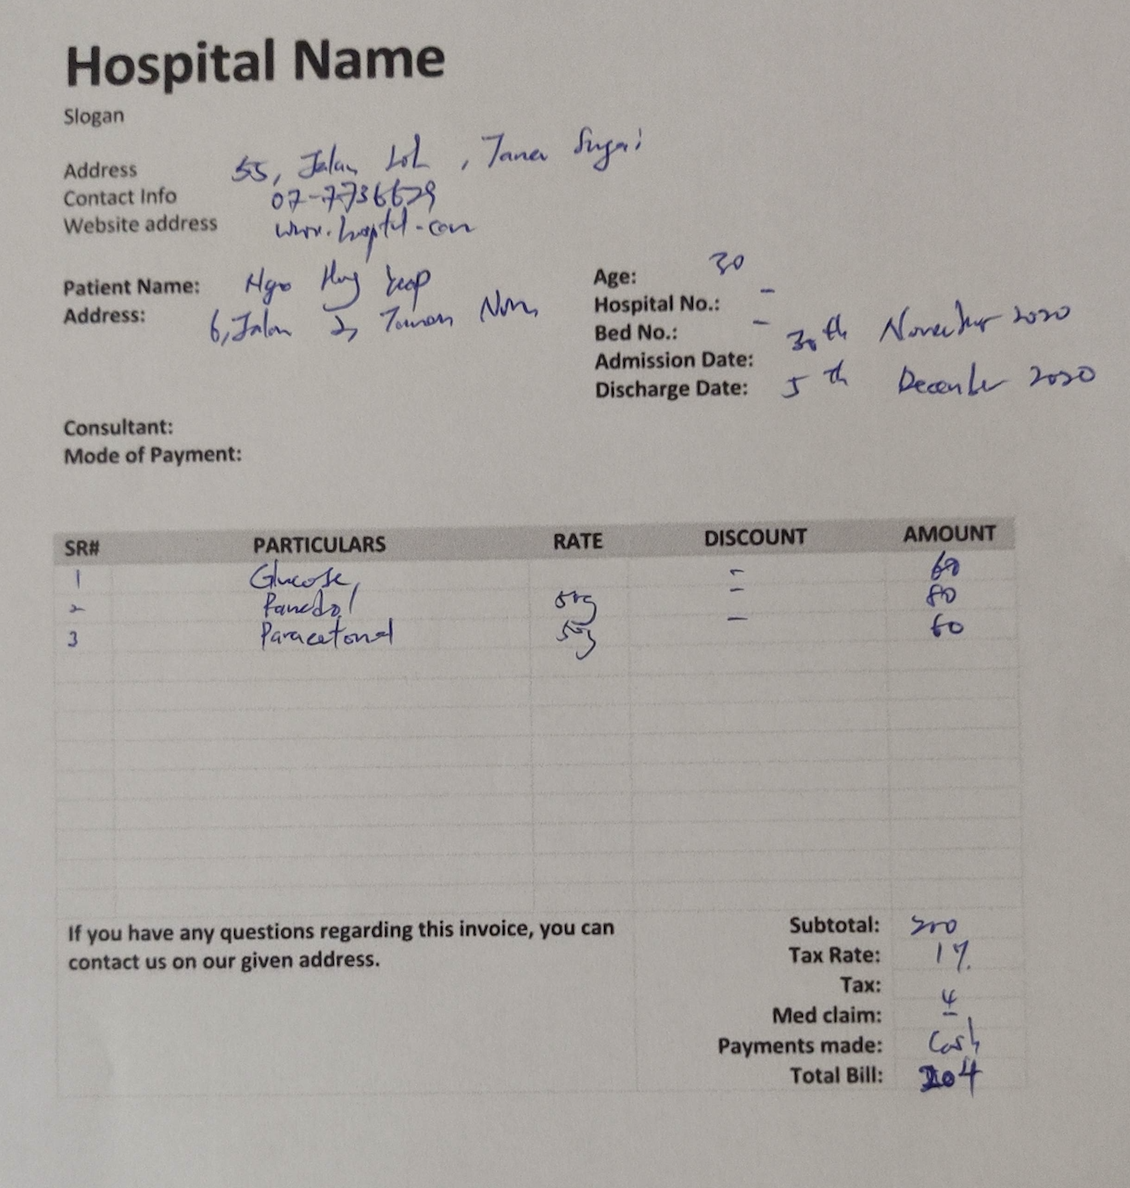 Hospital Name
Slogan
Address 55, Jalan LoL, Taman Sugai
Contact Info 07-7736629
Website address www.hosptl.com
Patient Name: Ngo Yeep
Address: 6, Jalan 2, Taman
Age: 30
Hospital No.: -
Bed No.: -
Admission Date: 30th November 2020
Discharge Date: 5th December 2020
Consultant:
Mode of Payment:
SR# PARTICULARS RATE DISCOUNT AMOUNT
1 Glucose - 60
2 Panedol - 80
3 Paracetomal - 60
If you have any questions regarding this invoice, you can
contact us on our given address.
Subtotal: 200
Tax Rate: 1%
Tax: 4
Med claim: -
Payments made: Cash
Total Bill: 204